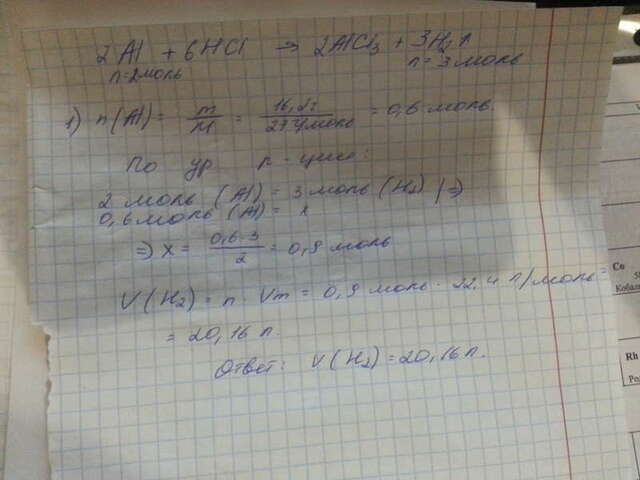 2Al + 6HCl → 2AlCl3 + 3H2↑
n=2моль n=3моль
1) n(Al) = m/M = 16,2г/27г/моль = 0,6 моль.
По ур р-ции:
2 моль (Al) = 3 моль (H2) | ⇒
0,6 моль (Al) = x
⇒ x = 0,6·3/2 = 0,9 моль
V(H2) = n · Vm = 0,9 моль · 22,4 л/моль =
= 20,16 л.
Ответ: V(H2) = 20,16 л.
Co
Rh